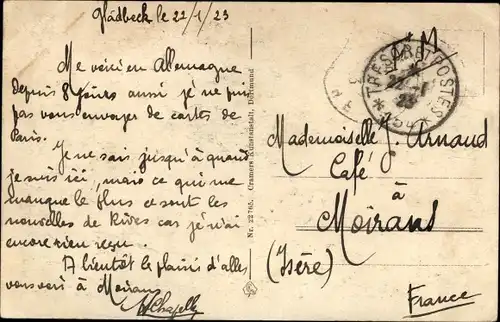 Gladbeck le 22/1/23
Me voici en Allemagne
depuis 8 jours aussi je ne puis
pas vous envoyer de cartes de
Paris.
Je ne sais jusqu'à quand
je suis ici, mais ce qui me
manque le plus ce sont les
nouvelles de Rives car je n'ai
encore rien reçu.
A bientôt le plaisir d'aller
vous voir à Moirans
Chapelle
Nr. 22765. Cramers Kunstanstalt, Dortmund
F M
TRESOR ET POSTES
22 - 1
23
Mademoiselle J. Arnaud
Café
à
Moirans
(Isère)
France